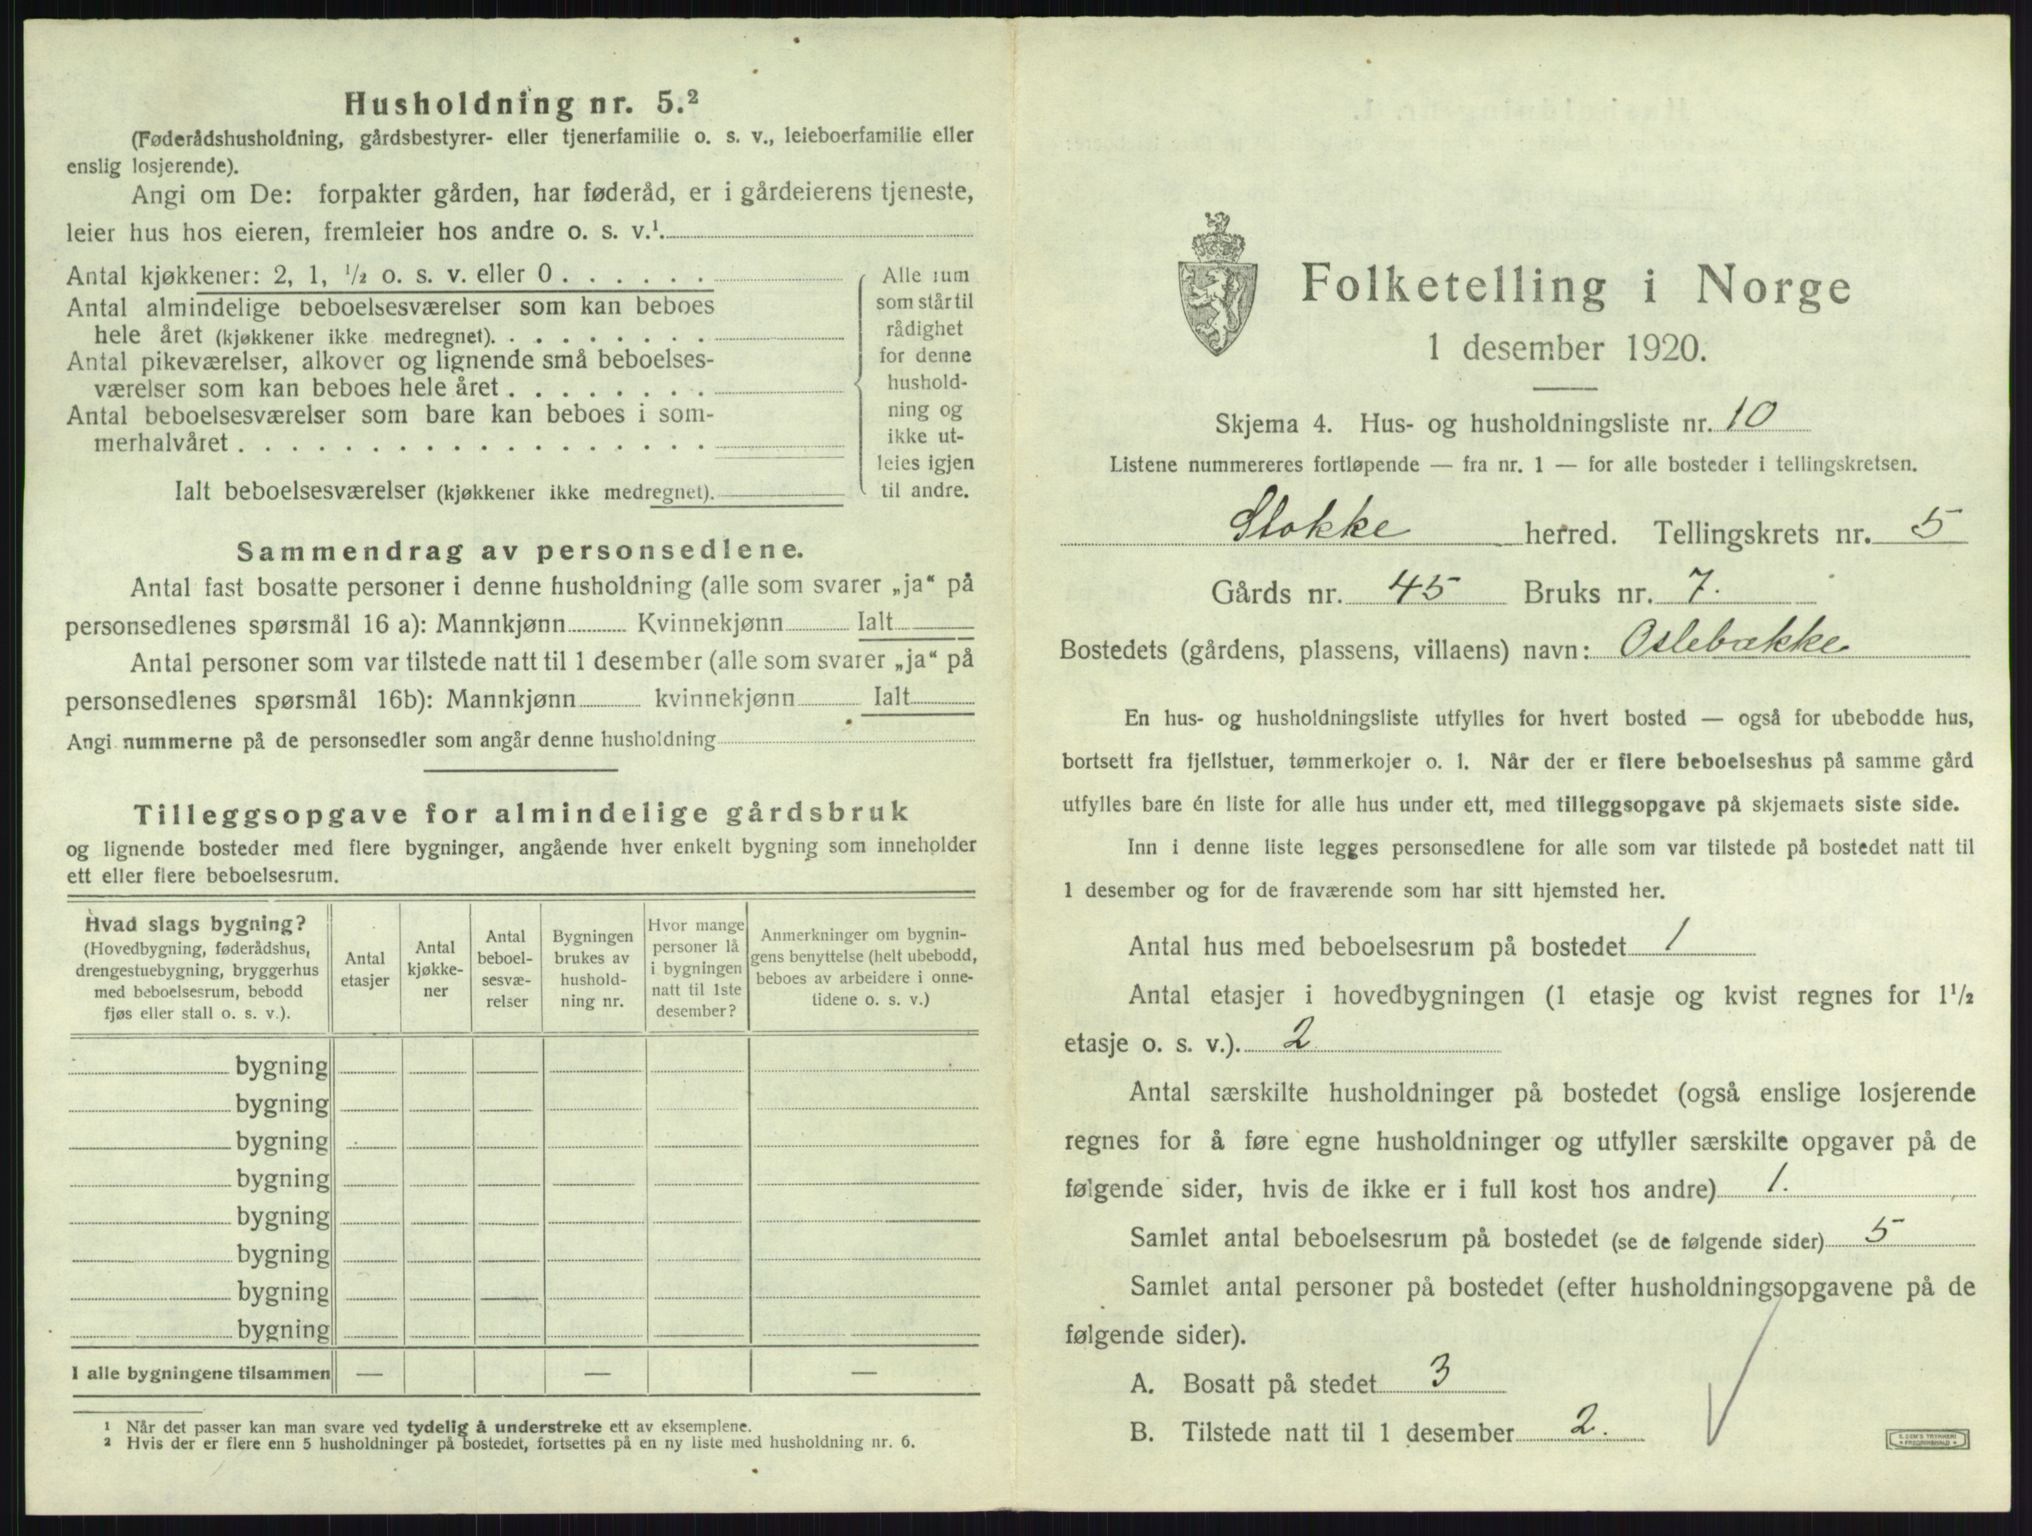 Husholdning nr. 5.²
(Føderådshusholdning, gårdsbestyrer- eller tjenerfamilie o. s. v., leieboerfamilie eller
enslig losjerende).
Angi om De: forpakter gården, har føderåd, er i gårdeierens tjeneste,
leier hus hos eieren, fremleier hos andre o. s. v.¹.
Antal kjøkkener: 2, 1, ½ o. s. v. eller 0 . . . . . .
Antal almindelige beboelsesværelser som kan beboes
hele året (kjøkkener ikke medregnet). . . . . . . . .
Antal pikeværelser, alkover og lignende små beboelses-
værelser som kan beboes hele året . . . . . . . .
Antal beboelsesværelser som bare kan beboes i som-
merhalvåret . . . . . . . . . . . . . . . . . .
Ialt beboelsesværelser (kjøkkener ikke medregnet).
Alle rum
som står til
rådighet
for denne
hushold-
ning og
ikke ut-
leies igjen
til andre.
Sammendrag av personsedlene.
Antal fast bosatte personer i denne husholdning (alle som svarer „ja“ på
personsedlenes spørsmål 16 a): Mannkjønn Kvinnekjønn Ialt
Antal personer som var tilstede natt til 1 desember (alle som svarer „ja“ på
personsedlenes spørsmål 16b): Mannkjønn kvinnekjønn Ialt
Angi nummerne på de personsedler som angår denne husholdning
Tilleggsopgave for almindelige gårdsbruk
og lignende bosteder med flere bygninger, angående hver enkelt bygning som inneholder
ett eller flere beboelsesrum.
Hvad slags bygning?
(Hovedbygning, føderådshus,
drengestuebygning, bryggerhus
med beboelsesrum, bebodd
fjøs eller stall o. s. v.).
Antal
etasjer
Antal
kjøkke-
ner
Antal
beboel-
sesvæ-
relser
Bygningen
brukes av
hushold-
ning nr.
Hvor mange
personer lå
i bygningen
natt til 1ste
desember?
Anmerkninger om bygnin-
gens benyttelse (helt ubebodd,
beboes av arbeidere i onne-
tidene o. s. v.)
bygning
bygning
bygning
bygning
bygning
bygning
bygning
bygning
I alle bygningene tilsammen — — —
¹ Når det passer kan man svare ved tydelig å understreke ett av eksemplene.
² Hvis der er flere enn 5 husholdninger på bostedet, fortsettes på en ny liste med husholdning nr. 6.
Folketelling i Norge
1 desember 1920.
Skjema 4. Hus- og husholdningsliste nr. 10
Listene nummereres fortløpende — fra nr. 1 — for alle bosteder i tellingskretsen.
Stokke herred. Tellingskrets nr. 5
Gårds nr. 45 Bruks nr. 7.
Bostedets (gårdens, plassens, villaens) navn: Oslebække
En hus- og husholdningsliste utfylles for hvert bosted — også for ubebodde hus,
bortsett fra fjellstuer, tømmerkojer o. l. Når der er flere beboelseshus på samme gård
utfylles bare én liste for alle hus under ett, med tilleggsopgave på skjemaets siste side.
Inn i denne liste legges personsedlene for alle som var tilstede på bostedet natt til
1 desember og for de fraværende som har sitt hjemsted her.
Antal hus med beboelsesrum på bostedet 1
Antal etasjer i hovedbygningen (1 etasje og kvist regnes for 1½
etasje o. s. v.). 2
Antal særskilte husholdninger på bostedet (også enslige losjerende
regnes for å føre egne husholdninger og utfyller særskilte opgaver på de
følgende sider, hvis de ikke er i full kost hos andre) 1.
Samlet antal beboelsesrum på bostedet (se de følgende sider) 5
Samlet antal personer på bostedet (efter husholdningsopgavene på de
følgende sider).
A. Bosatt på stedet 3
B. Tilstede natt til 1 desember 2.